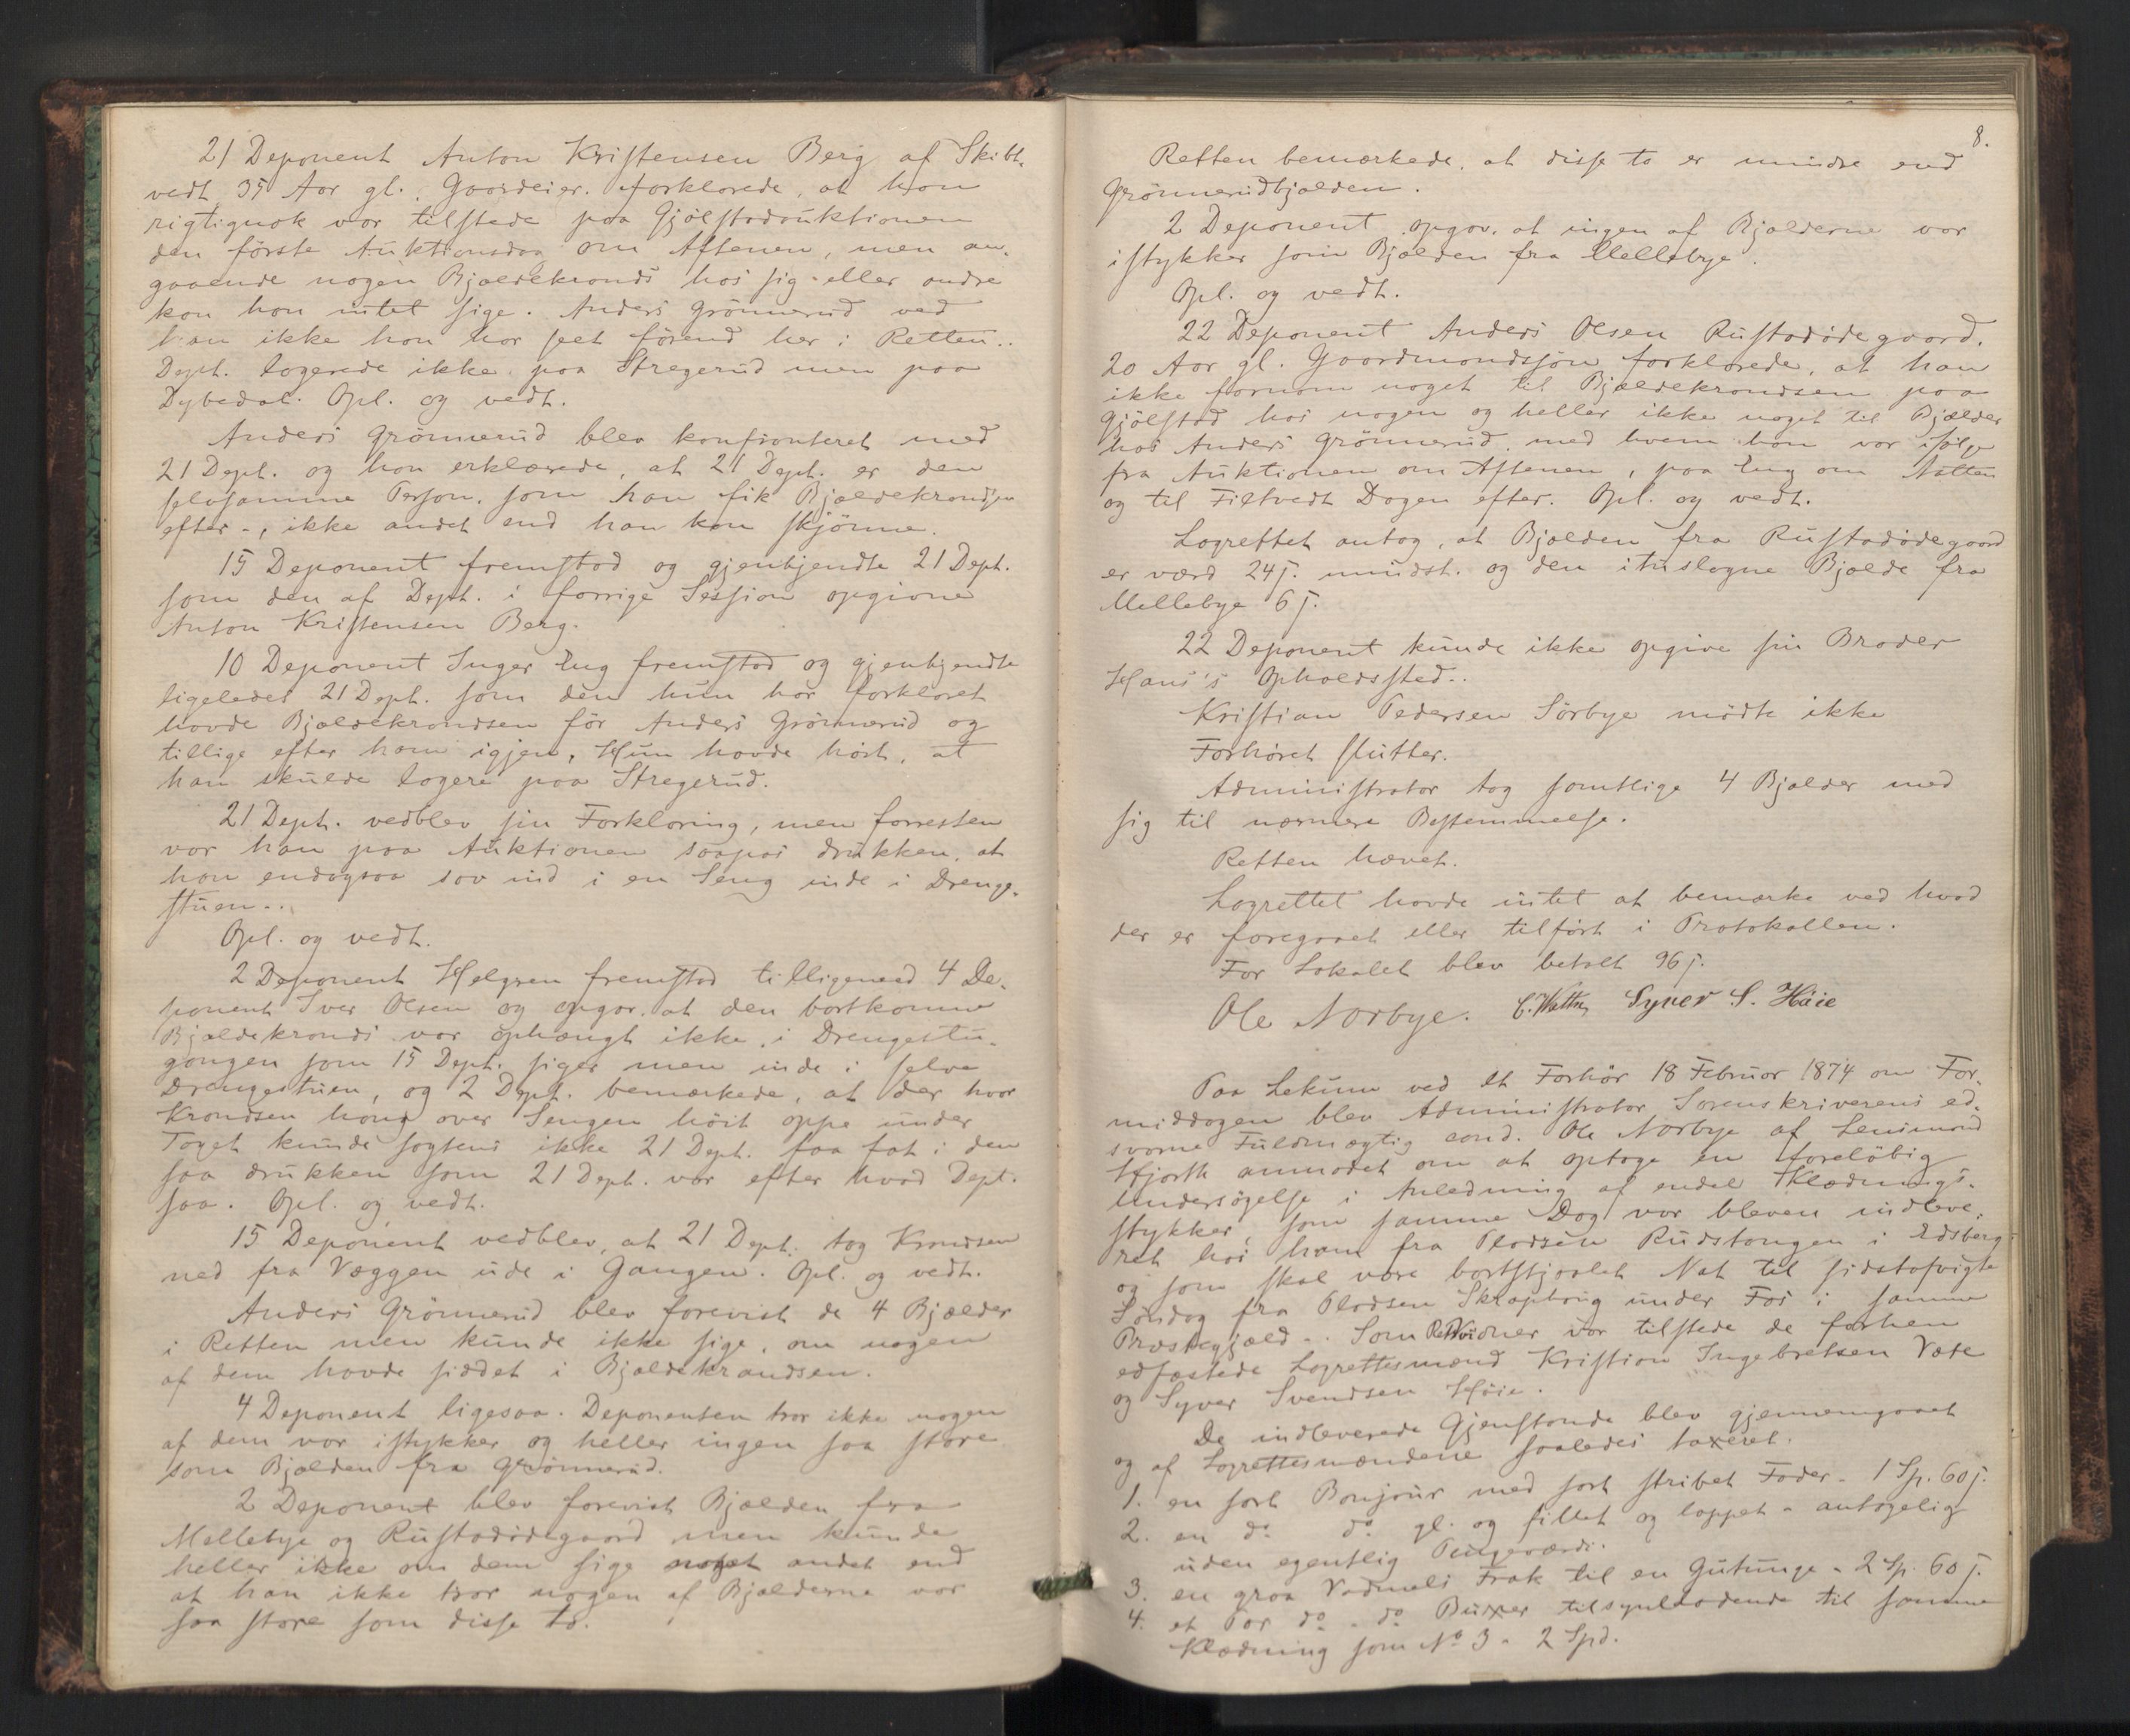 21 Deponent Anton Kristensen Berg af Skibt-
vedt 35 Aar gl. Gaardeier. forklarede, at han
rigtignok var tilstede paa Gjølstadauktionen
den første Auktionsdag om Aftenen, men an-
gaaende nogen Bjældekrands hos sig eller andre
kan han intet sige. Anders Grønnerud ved
han ikke han har seet førend her i Retten..
Dept. logerede ikke paa Stregerud men paa
Dybedal. Opl. og vedt.
Anders Grønnerud blev konfronteret med
21 Dept. og han erklærede, at 21 Dept. er den
selvsamme Person, som han fik Bjældekrandsen
efter -, ikke andet end han kan skjønne.
15 Deponent fremstod og gjenkjendte 21 Dept.
som den af Dept. i forrige Session opgivne
Anton Kristensen Berg.
10 Deponent Inger Lug fremstod og gjenkjendte
ligeledes 21 Dept. som den hun har forklaret
havde Bjældekrandsen før Anders Grønnerud og
tillige efter ham igjen, Hun havde hørt, at
han skulde logere paa Stregerud.
21 Dept. vedblev sin Forklaring, men forresten
var han paa Auktionen saapas drukken, at
han endogsaa sov ind i en Seng inde i Drenge-
stuen..
Opl. og vedt.
2 Deponent Helgren fremstod tilligemed 4 De-
ponent Iver Olsen og opgav, at den bortkomne
Bjældekrands var ophængt ikke i Drengestu-
gangen som 15 Dept. siger men inde i selve
Drengestuen, og 2 Dept. bemærkede, at der hvor
Krandsen hang over Sengen høit oppe under
Taget kunde sagtens ikke 21 Dept. faa fat i den
saa drukken som 21 Dept. var efter hvad Dept.
saa. Opl. og vedt.
15 Deponent vedblev, at 21 Dept. tog Krandsen
ned fra Væggen ude i Gangen. Opl. og vedt.
Anders Grønnerud blev forevist de 4 Bjælder
i Retten men kunde ikke sige, om nogen
af dem havde siddet i Bjældekrandsen.
4 Deponent ligesaa. Deponenten tror ikke nogen
af dem var istykker og heller ingen saa store
som Bjælden fra Grønnerud.
2 Deponent blev forevist Bjælden fra
Mellebye og Rustadødegaard men kunde
heller ikke om dem sige noget andet end
at han ikke tror nogen af Bjælderne var
saa store som disse to.
8.
Retten bemærkede, at disse to er mindre end
Grønnerudbjælden.
2 Deponent opgav, at ingen af Bjælderne var
istykker som Bjælden fra Mellebye.
Opl. og vedt.
22 Deponent Anders Olsen Rustadødegaard,
20 Aar gl. Gaardmandssøn forklarede, at han
ikke fornam noget til Bjældekrandsen paa
Gjølstad hos nogen og heller ikke noget til Bjælder
hos Anders Grønnerud med hvem han var ifølge
fra Auktionen om Aftenen, paa Lug om Natten
og til Filtvedt Dagen efter. Opl. og vedt.
Lagrettet antog, at Bjælden fra Rustadødegaard
er værd 24 ſ. mindst. og den ituslagne Bjælde fra
Mellebye 6 ſ.
22 Deponent kunde ikke opgive sin Broder
Hans's Opholdssted..
Kristian Pedersen Sørbye mødte ikke
Forhøret slutter.
Administrator tog samtlige 4 Bjælder med
sig til nærmere Bestemmelse.
Retten hævet.
Lagrettet havde intet at bemærke ved hvad
der er foregaaet eller tilført i Protokollen.
For Lokalet blev betalt 96 ſ.
Ole Norbye. Syver S. Häie
Paa Lekum ved et Forhør 18 Februar 1874 om For-
middagen blev Administrator Sorenskriverens ed-
svorne Fuldmægtig cand. Ole Norbye af Lensmand
Hjorth anmodet om at optage en foreløbig
Undersøgelse i Anledning af endel Klædnings-
stykker som samme Dag var bleven indleve-
ret hos ham fra Pladsen Rudstangen i Edsberg
og som skal være bortstjaalet Nat til sidstafvigte
Søndag fra Pladsen Skraphaug under Fos i samme
Præstegjæld.. Som RetsVidner var tilstede de forhen
edfæstede Lagrettesmænd Kristian Ingebretsen Væte
og Syver Svendsen Høie.
De indleverede Gjenstande blev gjennemgaaet
og af Lagrettesmændene saaledes taxeret.
1. en sort Bonjour med sort stribet Foder - 1 Sp. 60 ſ.
2. en do do gl. og fillet og lappet - antagelig
uden egentlig Pengeværdi.
3. en graa Vadmels Frak til en Gutunge - 2 Sp. 60 ſ.
4. et Par do - do Buxer tilsyneladende til samme
Klædning som No 3 - 2 Spd.